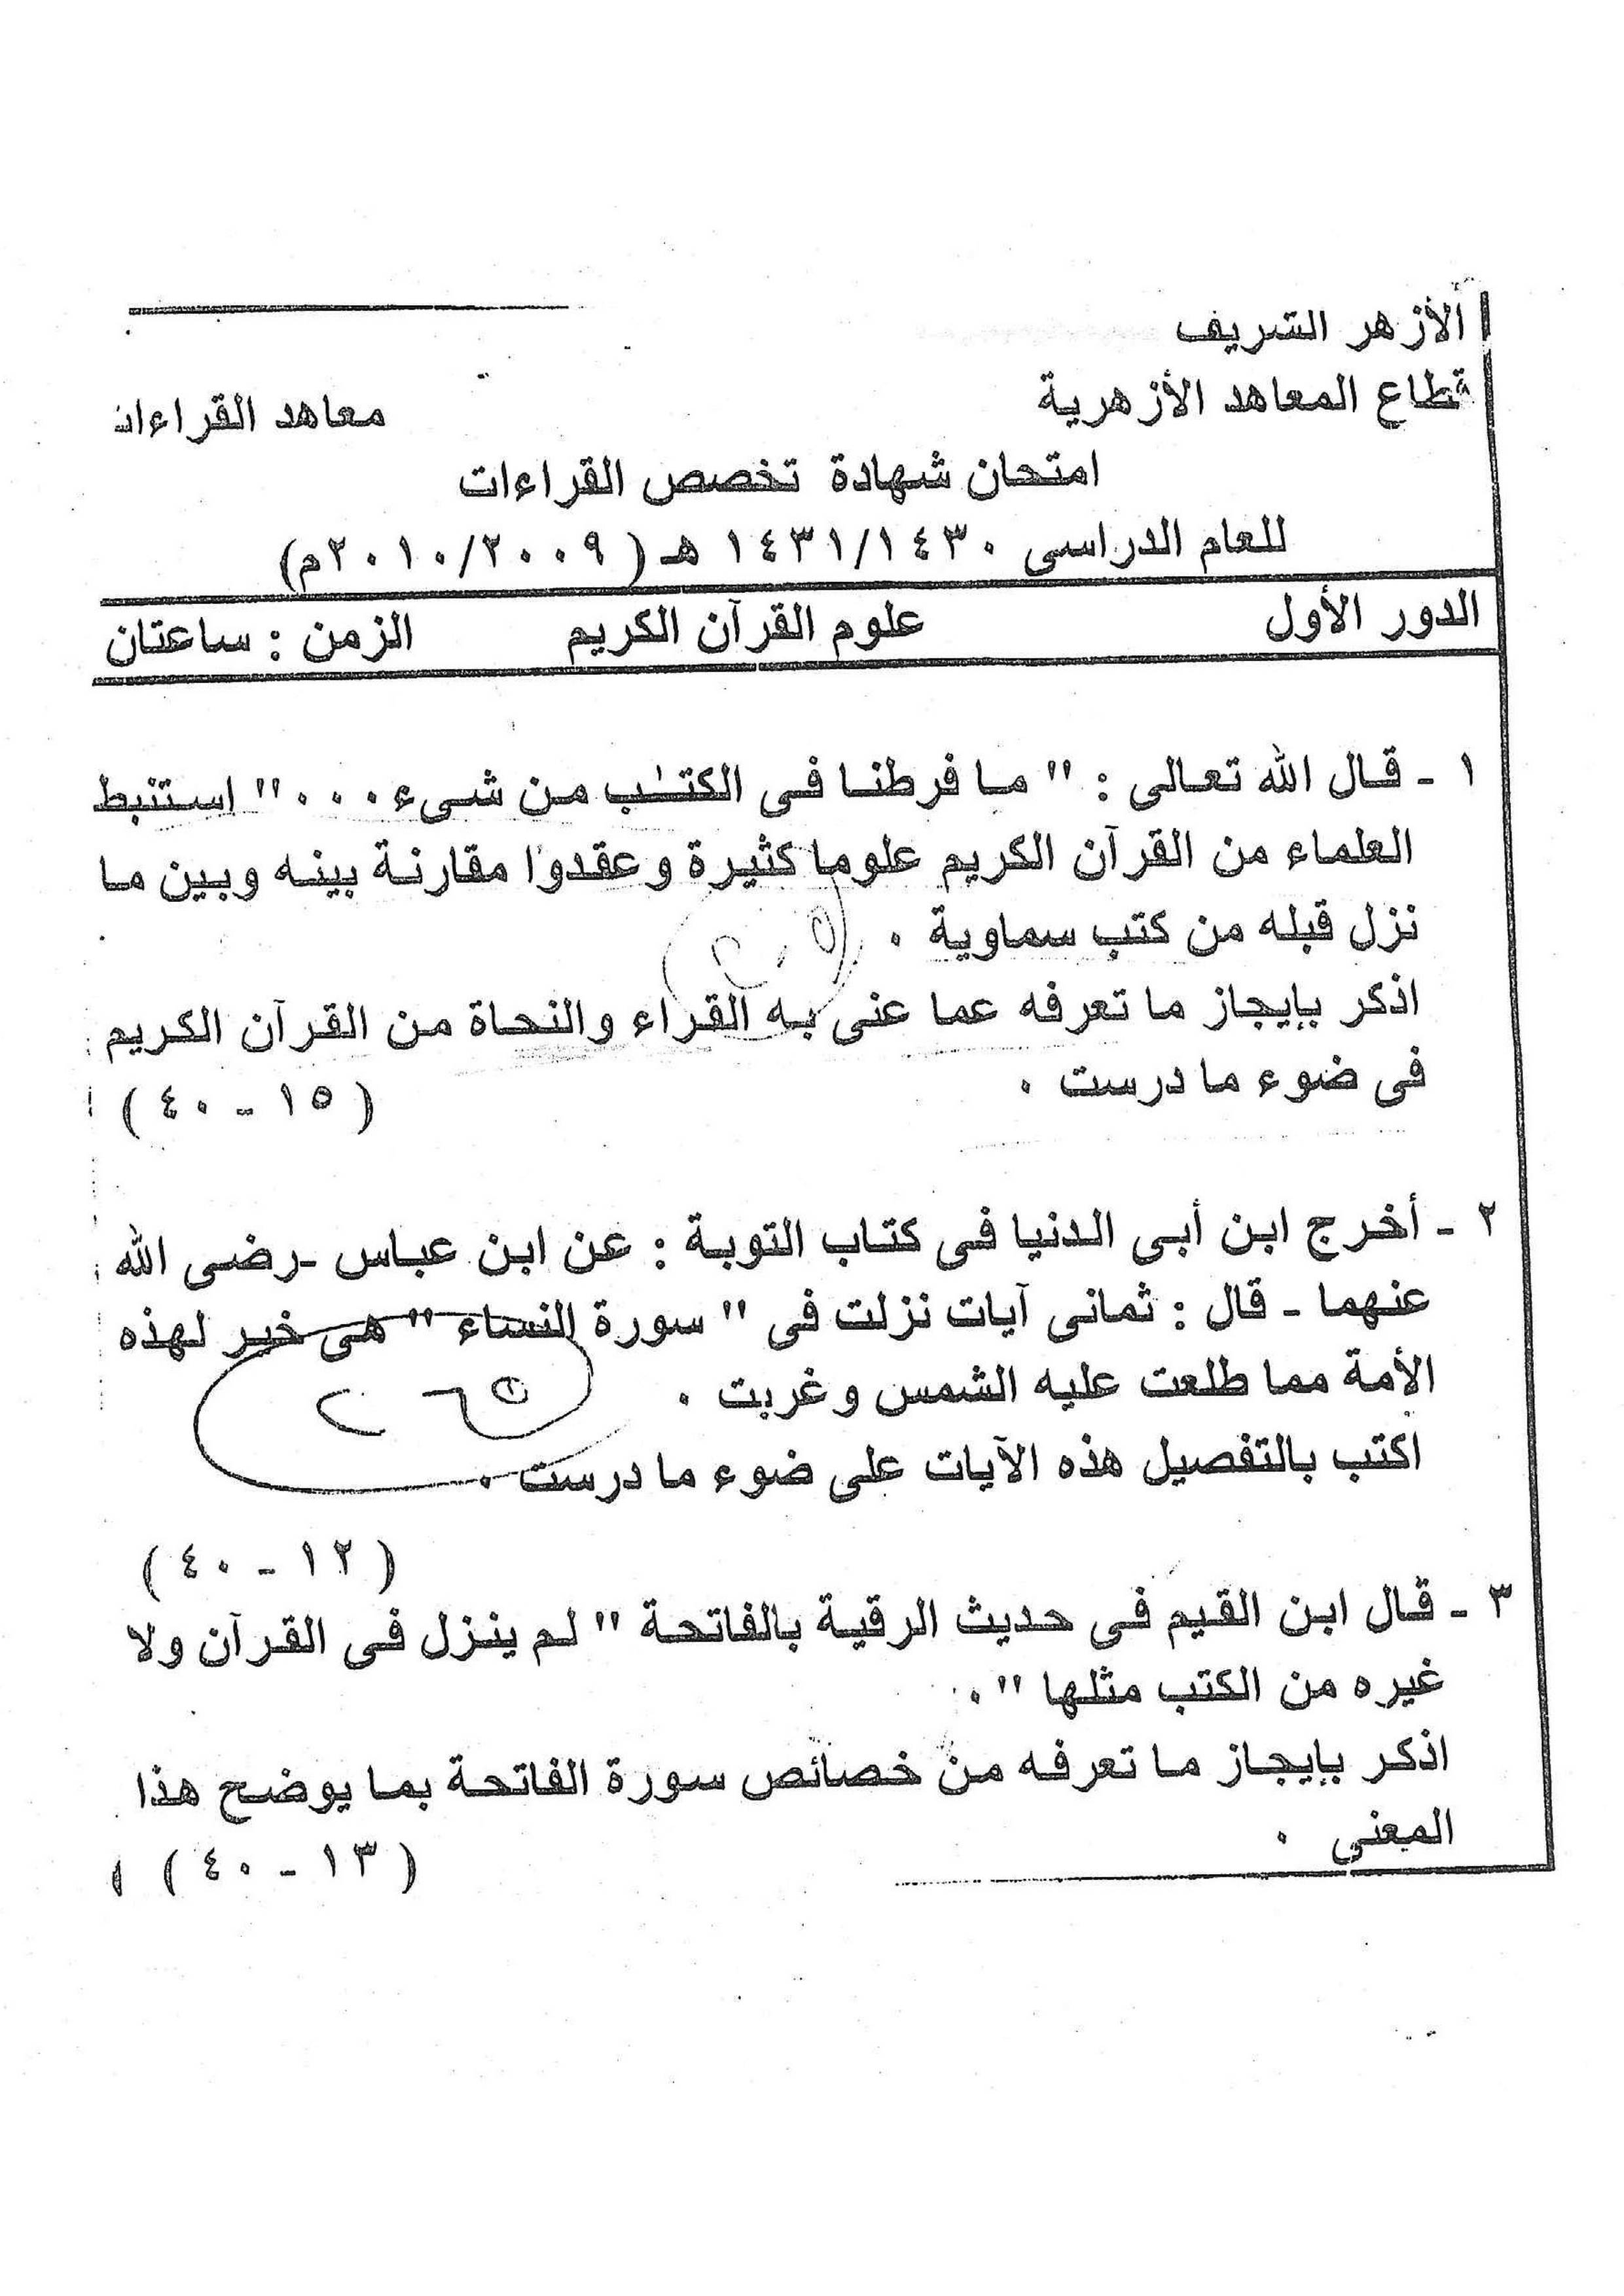 الأزهر الشريف
قطاع المعاهد الأزهرية
معاهد القراءات
امتحان شهادة تخصص القراءات
للعام الدراسى ١٤٣١/١٤٣٠ هـ ( ٢٠١٠/٢٠٠٩م)
الدور الأول علوم القرآن الكريم الزمن : ساعتان
١ - قال الله تعالى : " ما فرطنا فى الكتٰب من شىء ٠٠٠ " استنبط
العلماء من القرآن الكريم علوما كثيرة وعقدوا مقارنة بينه وبين ما
نزل قبله من كتب سماوية ٠
اذكر بإيجاز ما تعرفه عما عنى به القراء والنحاة من القرآن الكريم
فى ضوء ما درست ٠
( ١٥ - ٤٠ )
٢ - أخرج ابن أبى الدنيا فى كتاب التوبة : عن ابن عباس -رضى الله
عنهما - قال : ثمانى آيات نزلت فى " سورة النساء " هى خير لهذه
الأمة مما طلعت عليه الشمس وغربت ٠
اكتب بالتفصيل هذه الآيات على ضوء ما درست ٠
( ١٢ - ٤٠ )
٣ - قال ابن القيم فى حديث الرقية بالفاتحة " لم ينزل فى القرآن ولا
غيره من الكتب مثلها " ٠
اذكر بإيجاز ما تعرفه من خصائص سورة الفاتحة بما يوضح هذا
المعنى ٠
( ١٣ - ٤٠ )